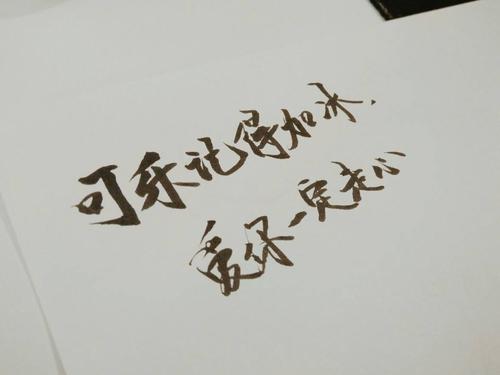 可乐记得加冰.
爱我一定走心